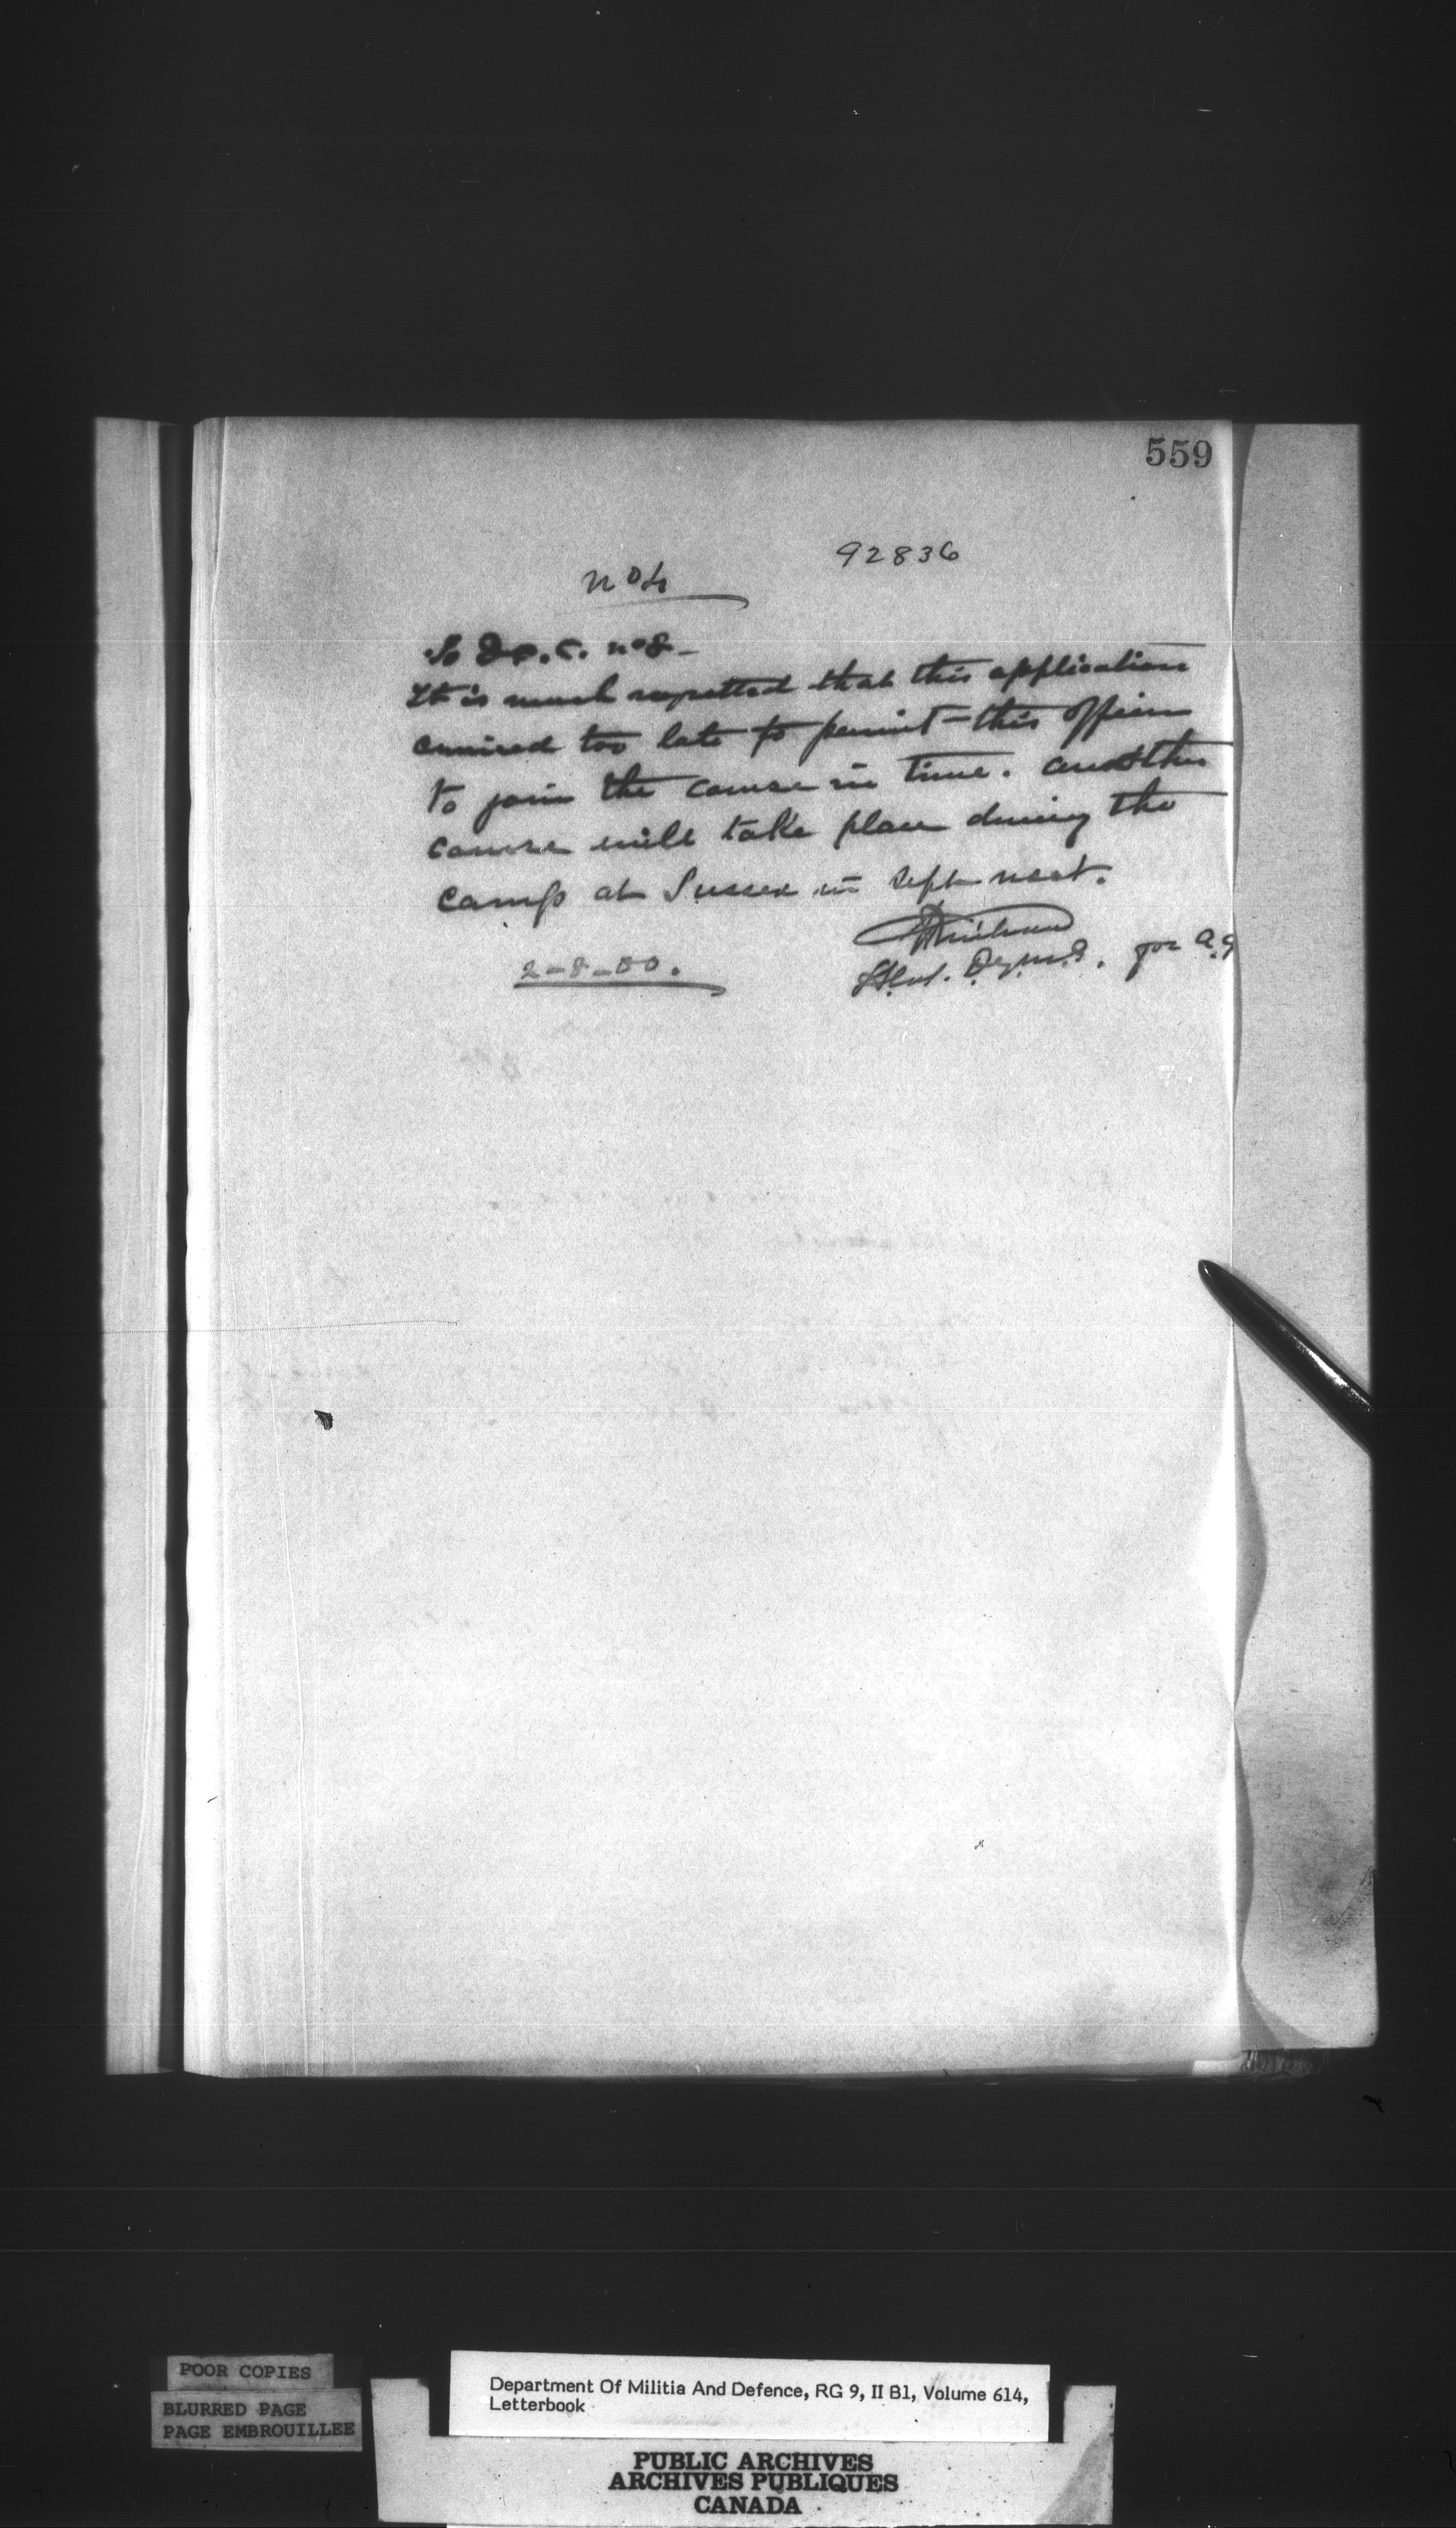 559
92836
No 4
To D.O.C. no 8 -
It is much regretted that this application
arrived too late to permit - this officer
to join the course in time. another
course will take place during the
camp at Sussex in Sept next.
Lt Col. D.Q.M.G. for A.G
2-8-00.
POOR COPIES
BLURRED PAGE
PAGE EMBROUILLEE
Department Of Militia And Defence, RG 9, II B1, Volume 614,
Letterbook
PUBLIC ARCHIVES
ARCHIVES PUBLIQUES
CANADA